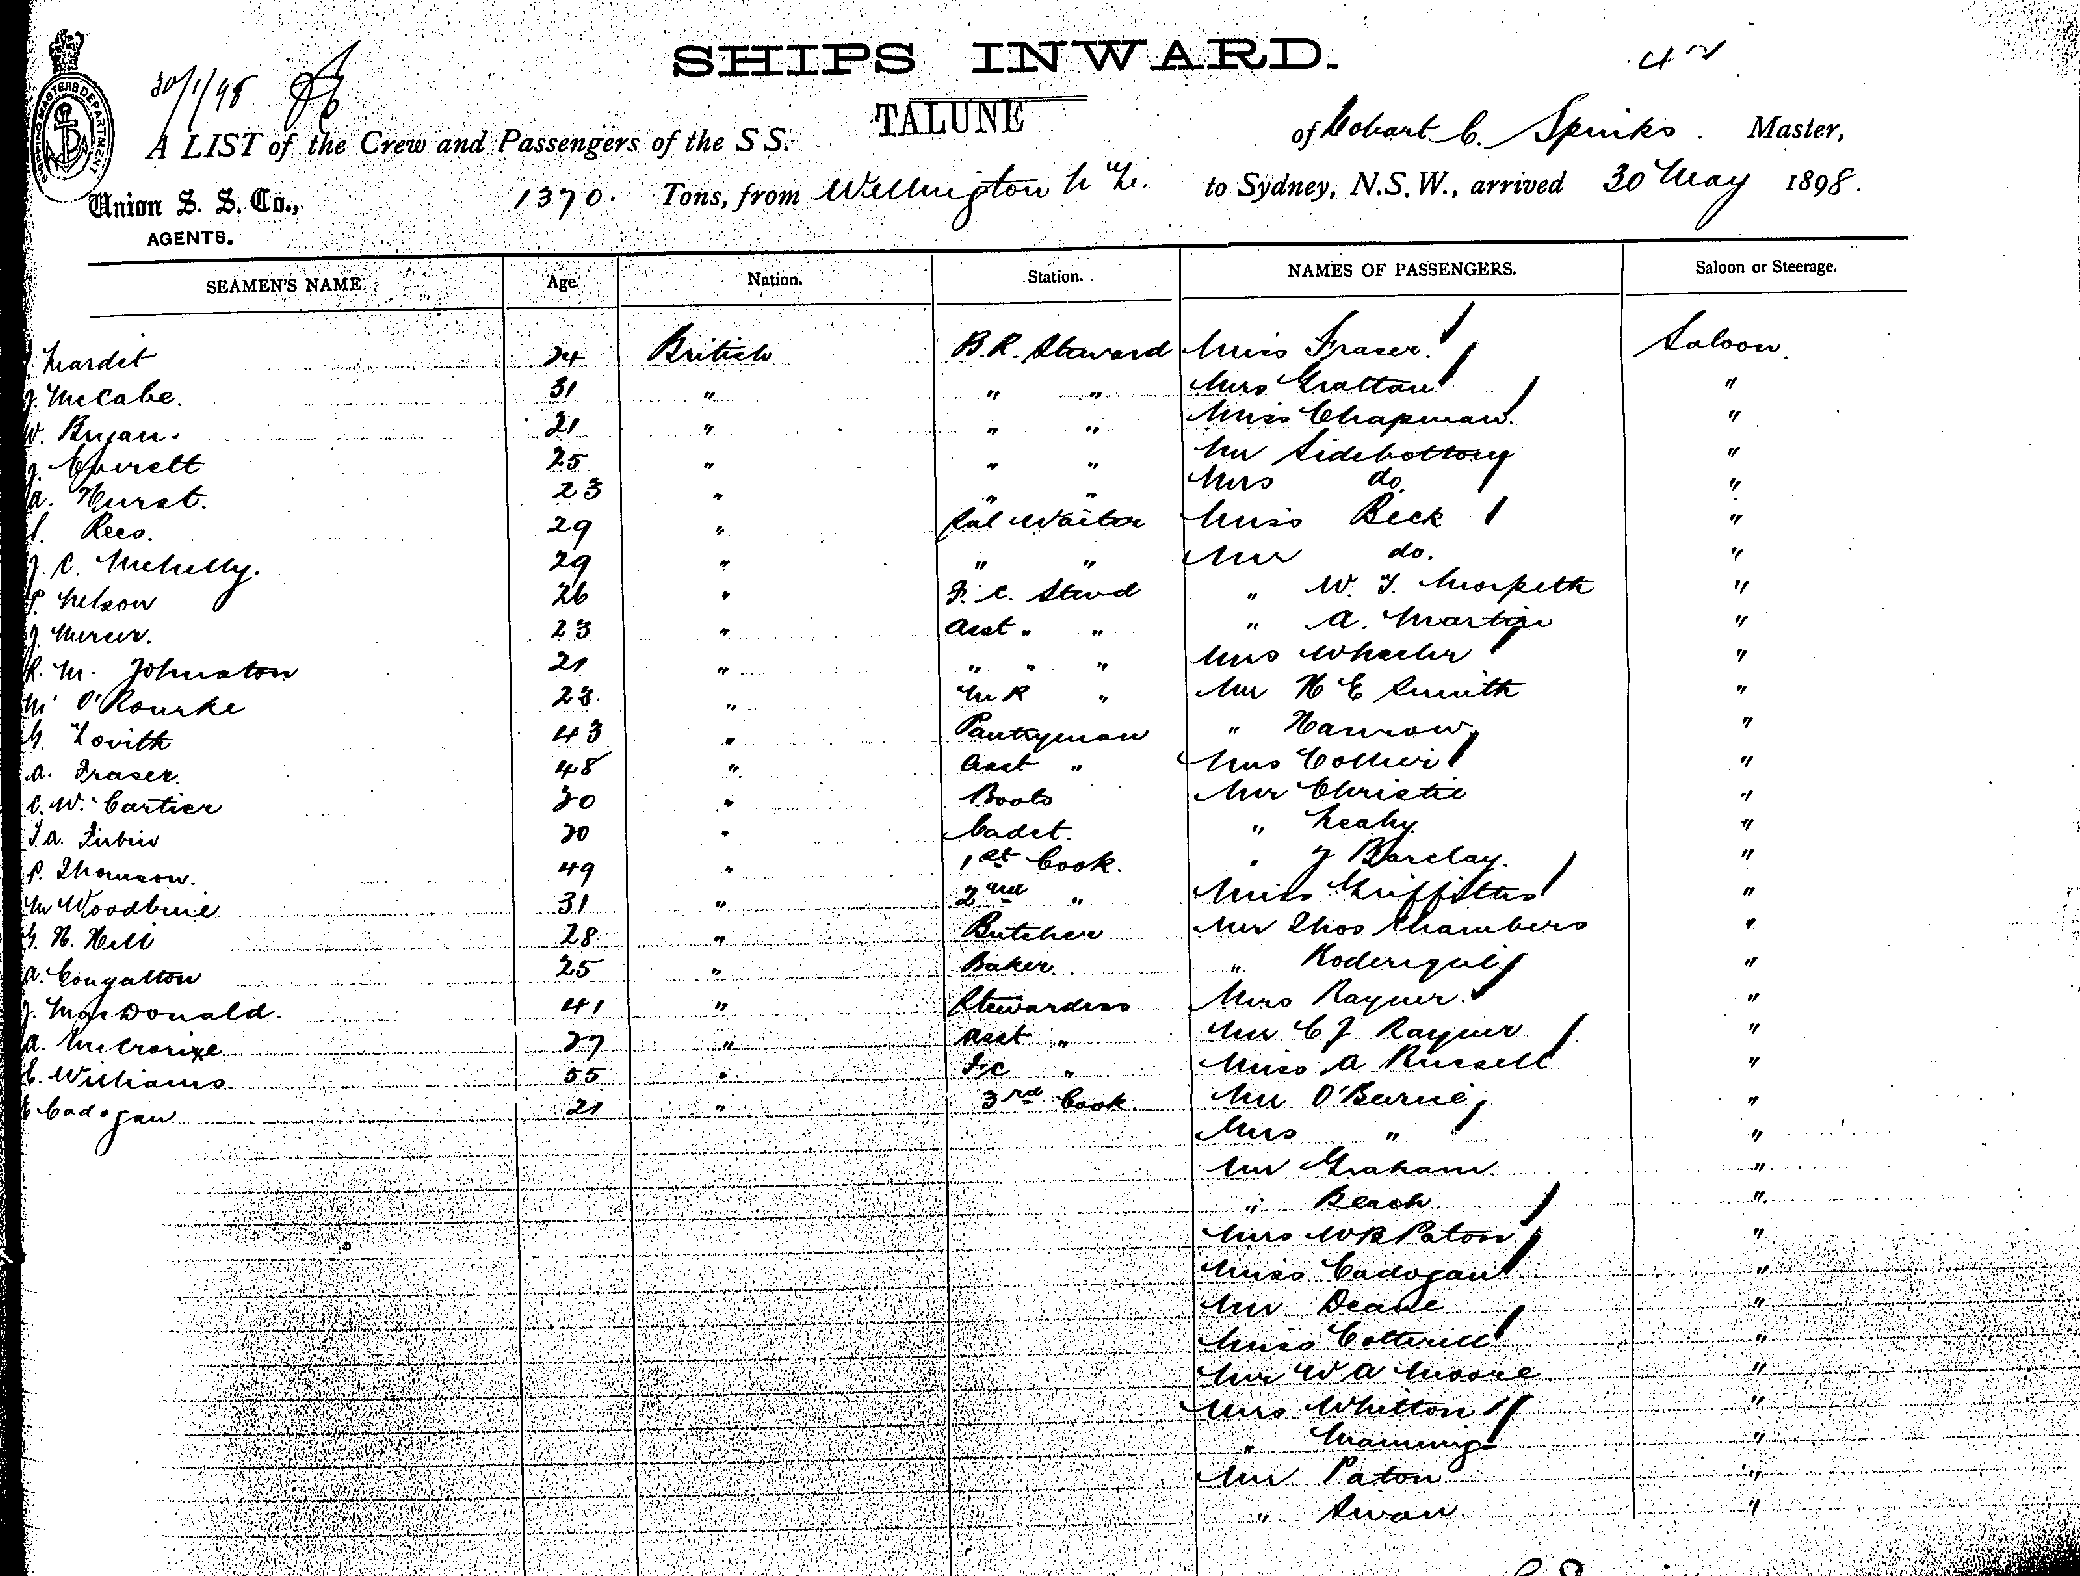 SHIPS INWARD.
30/1/98
TALUNE
A LIST of the Crew and Passengers of the S S. of Cobart C. Spinks. Master,
Union S. S. Co., 1370. Tons, from Wellington N Z. to Sydney, N.S.W., arrived 30 May 1898.
AGENTS.
SEAMEN'S NAME Age Nation. Station. NAMES OF PASSENGERS. Saloon or Steerage.
24 British B.R. Steward Miss Fraser. Saloon.
J. McCabe. 31 " " " Mrs Grattan "
W. Bryan. 21 " " " Miss Chapman. "
J. Everett 25 " " " Mr Sidebottom "
A. Hurst. 23 " " " Mrs do. "
Rees. 29 " Sal Waiter Miss Beck "
J. C. McNelly. 29 " " " Mr do. "
P. Nelson 26 " F. C. Stewd " W. T. Morpeth "
J. Mercer. 23 " Asst " " " A. Martin "
R. M. Johnston 21 " " " " Mrs Wheeler "
M O'Rourke 23. " M R " Mr H E Smith "
G. Lovith 43 " Pantryman " Harrow "
A. Fraser. 48 " Asst " Mrs Collier "
C. W. Cartier 20 " Boots Mr Christie "
20 " Cadet. " Leahy "
P. Thomson. 49 " 1st Cook. " J Barclay. "
M Woodbine 31 " 2nd " Miss Griffiths "
G. H. Hill 28 " Butcher Mr Thos Chambers "
A. Congalton 25 " Baker. " Roderique "
J. MacDonald. 41 " Stewardess Mrs Rayner. "
A. McCrorixe 27 " Asst " Mr C J Rayner "
E. Williams 55 " F.C " Miss A Russell "
Cadogan 21 " 3rd Cook. Mr O'Beirne "
Mrs " "
Mr Graham "
" Beach "
Mrs W R Paton "
Miss Cadogan "
Mr Deane "
Miss Cotterill "
Mr W A Moore "
Mrs Whitton "
" Manning "
Mr Paton "
" Swan "